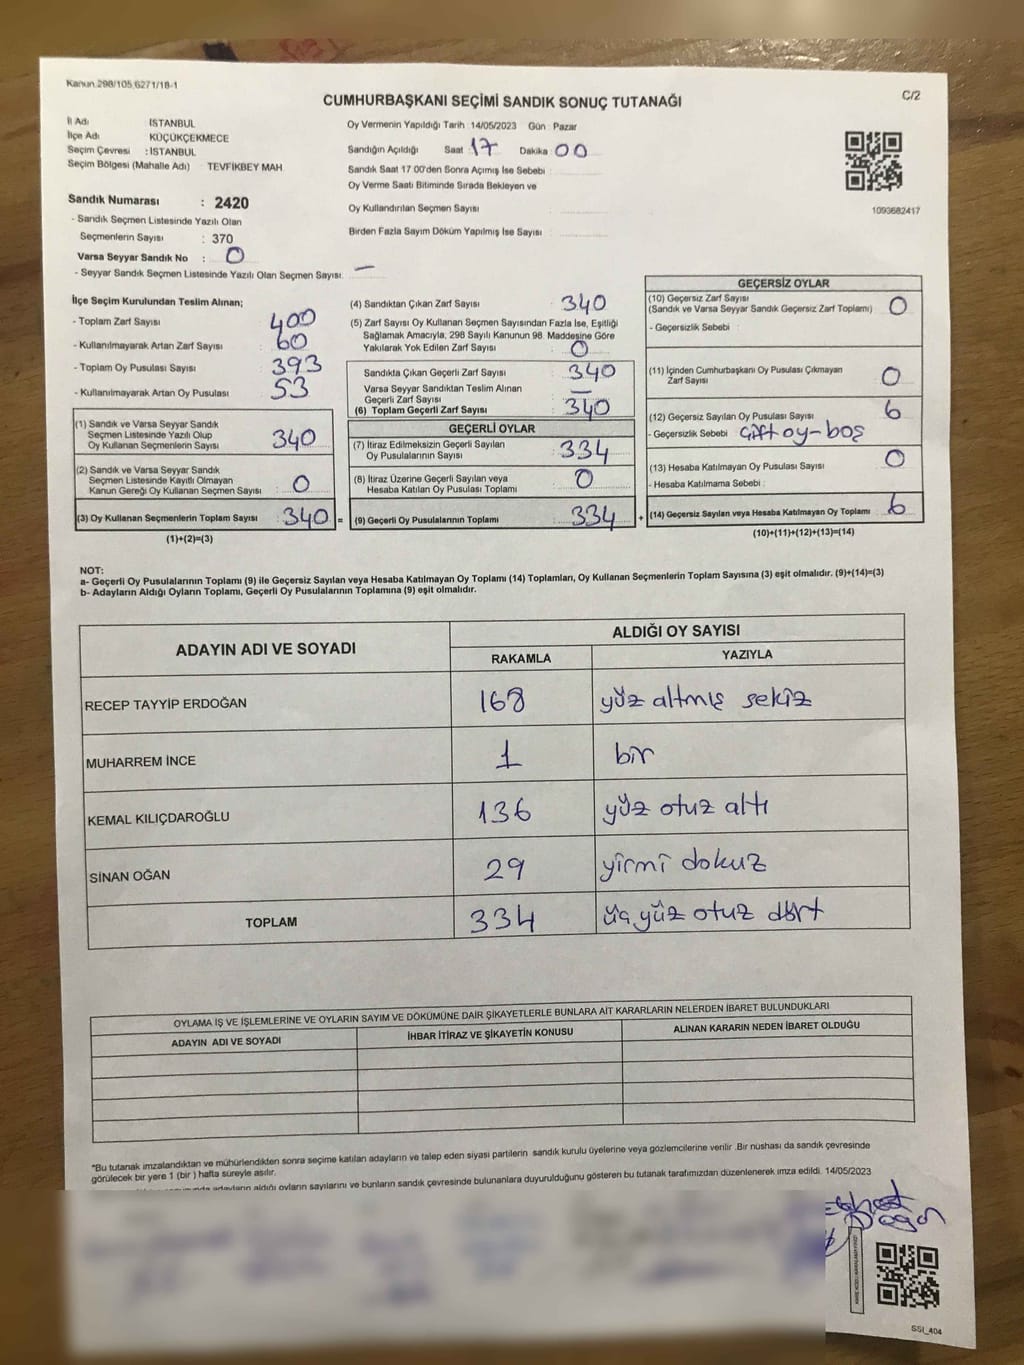 Kanun.298/105,6271/18-1
C/2
CUMHURBAŞKANI SEÇİMİ SANDIK SONUÇ TUTANAĞI
İl Adı İSTANBUL
İlçe Adı KÜÇÜKÇEKMECE
Seçim Çevresi : İSTANBUL
Seçim Bölgesi (Mahalle Adı) TEVFİKBEY MAH
Sandık Numarası : 2420
- Sandık Seçmen Listesinde Yazılı Olan
Seçmenlerin Sayısı : 370
Varsa Seyyar Sandık No : 0
- Seyyar Sandık Seçmen Listesinde Yazılı Olan Seçmen Sayısı: —
Oy Vermenin Yapıldığı Tarih : 14/05/2023 Gün : Pazar
Sandığın Açıldığı Saat 17 Dakika 00
Sandık Saat 17.00'den Sonra Açımış İse Sebebi :
Oy Verme Saati Bitiminde Sırada Bekleyen ve
Oy Kullandırılan Seçmen Sayısı :
Birden Fazla Sayım Döküm Yapılmış İse Sayısı :
1093682417
İlçe Seçim Kurulundan Teslim Alınan;
- Toplam Zarf Sayısı : 400
- Kullanılmayarak Artan Zarf Sayısı : 60
- Toplam Oy Pusulası Sayısı : 393
- Kullanılmayarak Artan Oy Pusulası : 53
(1) Sandık ve Varsa Seyyar Sandık
Seçmen Listesinde Yazılı Olup
Oy Kullanan Seçmenlerin Sayısı : 340
(2) Sandık ve Varsa Seyyar Sandık
Seçmen Listesinde Kayıtlı Olmayan
Kanun Gereği Oy Kullanan Seçmen Sayısı : 0
(3) Oy Kullanan Seçmenlerin Toplam Sayısı : 340 =
(1)+(2)=(3)
(4) Sandıktan Çıkan Zarf Sayısı : 340
(5) Zarf Sayısı Oy Kullanan Seçmen Sayısından Fazla İse, Eşitliği
Sağlamak Amacıyla, 298 Sayılı Kanunun 98. Maddesine Göre
Yakılarak Yok Edilen Zarf Sayısı : 0
Sandıkta Çıkan Geçerli Zarf Sayısı : 340
Varsa Seyyar Sandıktan Teslim Alınan
Geçerli Zarf Sayısı : —
(6) Toplam Geçerli Zarf Sayısı : 340
GEÇERLİ OYLAR
(7) İtiraz Edilmeksizin Geçerli Sayılan
Oy Pusulalarının Sayısı : 334
(8) İtiraz Üzerine Geçerli Sayılan veya
Hesaba Katılan Oy Pusulası Toplamı : 0
(9) Geçerli Oy Pusulalarının Toplamı : 334 +
GEÇERSİZ OYLAR
(10) Geçersiz Zarf Sayısı
(Sandık ve Varsa Seyyar Sandık Geçersiz Zarf Toplamı) : 0
- Geçersizlik Sebebi :
(11) İçinden Cumhurbaşkanı Oy Pusulası Çıkmayan
Zarf Sayısı : 0
(12) Geçersiz Sayılan Oy Pusulası Sayısı : 6
- Geçersizlik Sebebi : Çift oy-boş
(13) Hesaba Katılmayan Oy Pusulası Sayısı : 0
- Hesaba Katılmama Sebebi :
(14) Geçersiz Sayılan veya Hesaba Katılmayan Oy Toplamı : 6
(10)+(11)+(12)+(13)=(14)
NOT:
a- Geçerli Oy Pusulalarının Toplamı (9) ile Geçersiz Sayılan veya Hesaba Katılmayan Oy Toplamı (14) Toplamları, Oy Kullanan Seçmenlerin Toplam Sayısına (3) eşit olmalıdır. (9)+(14)=(3)
b- Adayların Aldığı Oyların Toplamı, Geçerli Oy Pusulalarının Toplamına (9) eşit olmalıdır.
ADAYIN ADI VE SOYADI
ALDIĞI OY SAYISI
RAKAMLA YAZIYLA
RECEP TAYYİP ERDOĞAN 168 yüz altmış sekiz
MUHARREM İNCE 1 bir
KEMAL KILIÇDAROĞLU 136 yüz otuz altı
SİNAN OĞAN 29 yirmi dokuz
TOPLAM 334 üç yüz otuz dört
OYLAMA İŞ VE İŞLEMLERİNE VE OYLARIN SAYIM VE DÖKÜMÜNE DAİR ŞİKAYETLERLE BUNLARA AİT KARARLARIN NELERDEN İBARET BULUNDUKLARI
ADAYIN ADI VE SOYADI İHBAR İTİRAZ VE ŞİKAYETİN KONUSU ALINAN KARARIN NEDEN İBARET OLDUĞU
*Bu tutanak imzalandıktan ve mühürlendikten sonra seçime katılan adayların ve talep eden siyasi partilerin sandık kurulu üyelerine veya gözlemcilerine verilir .Bir nüshası da sandık çevresinde
görülecek bir yere 1 (bir ) hafta süreyle asılır.
adayların aldığı oyların sayılarını ve bunların sandık çevresinde bulunanlara duyurulduğunu gösteren bu tutanak tarafımızdan düzenlenerek imza edildi. 14/05/2023
SSI_404